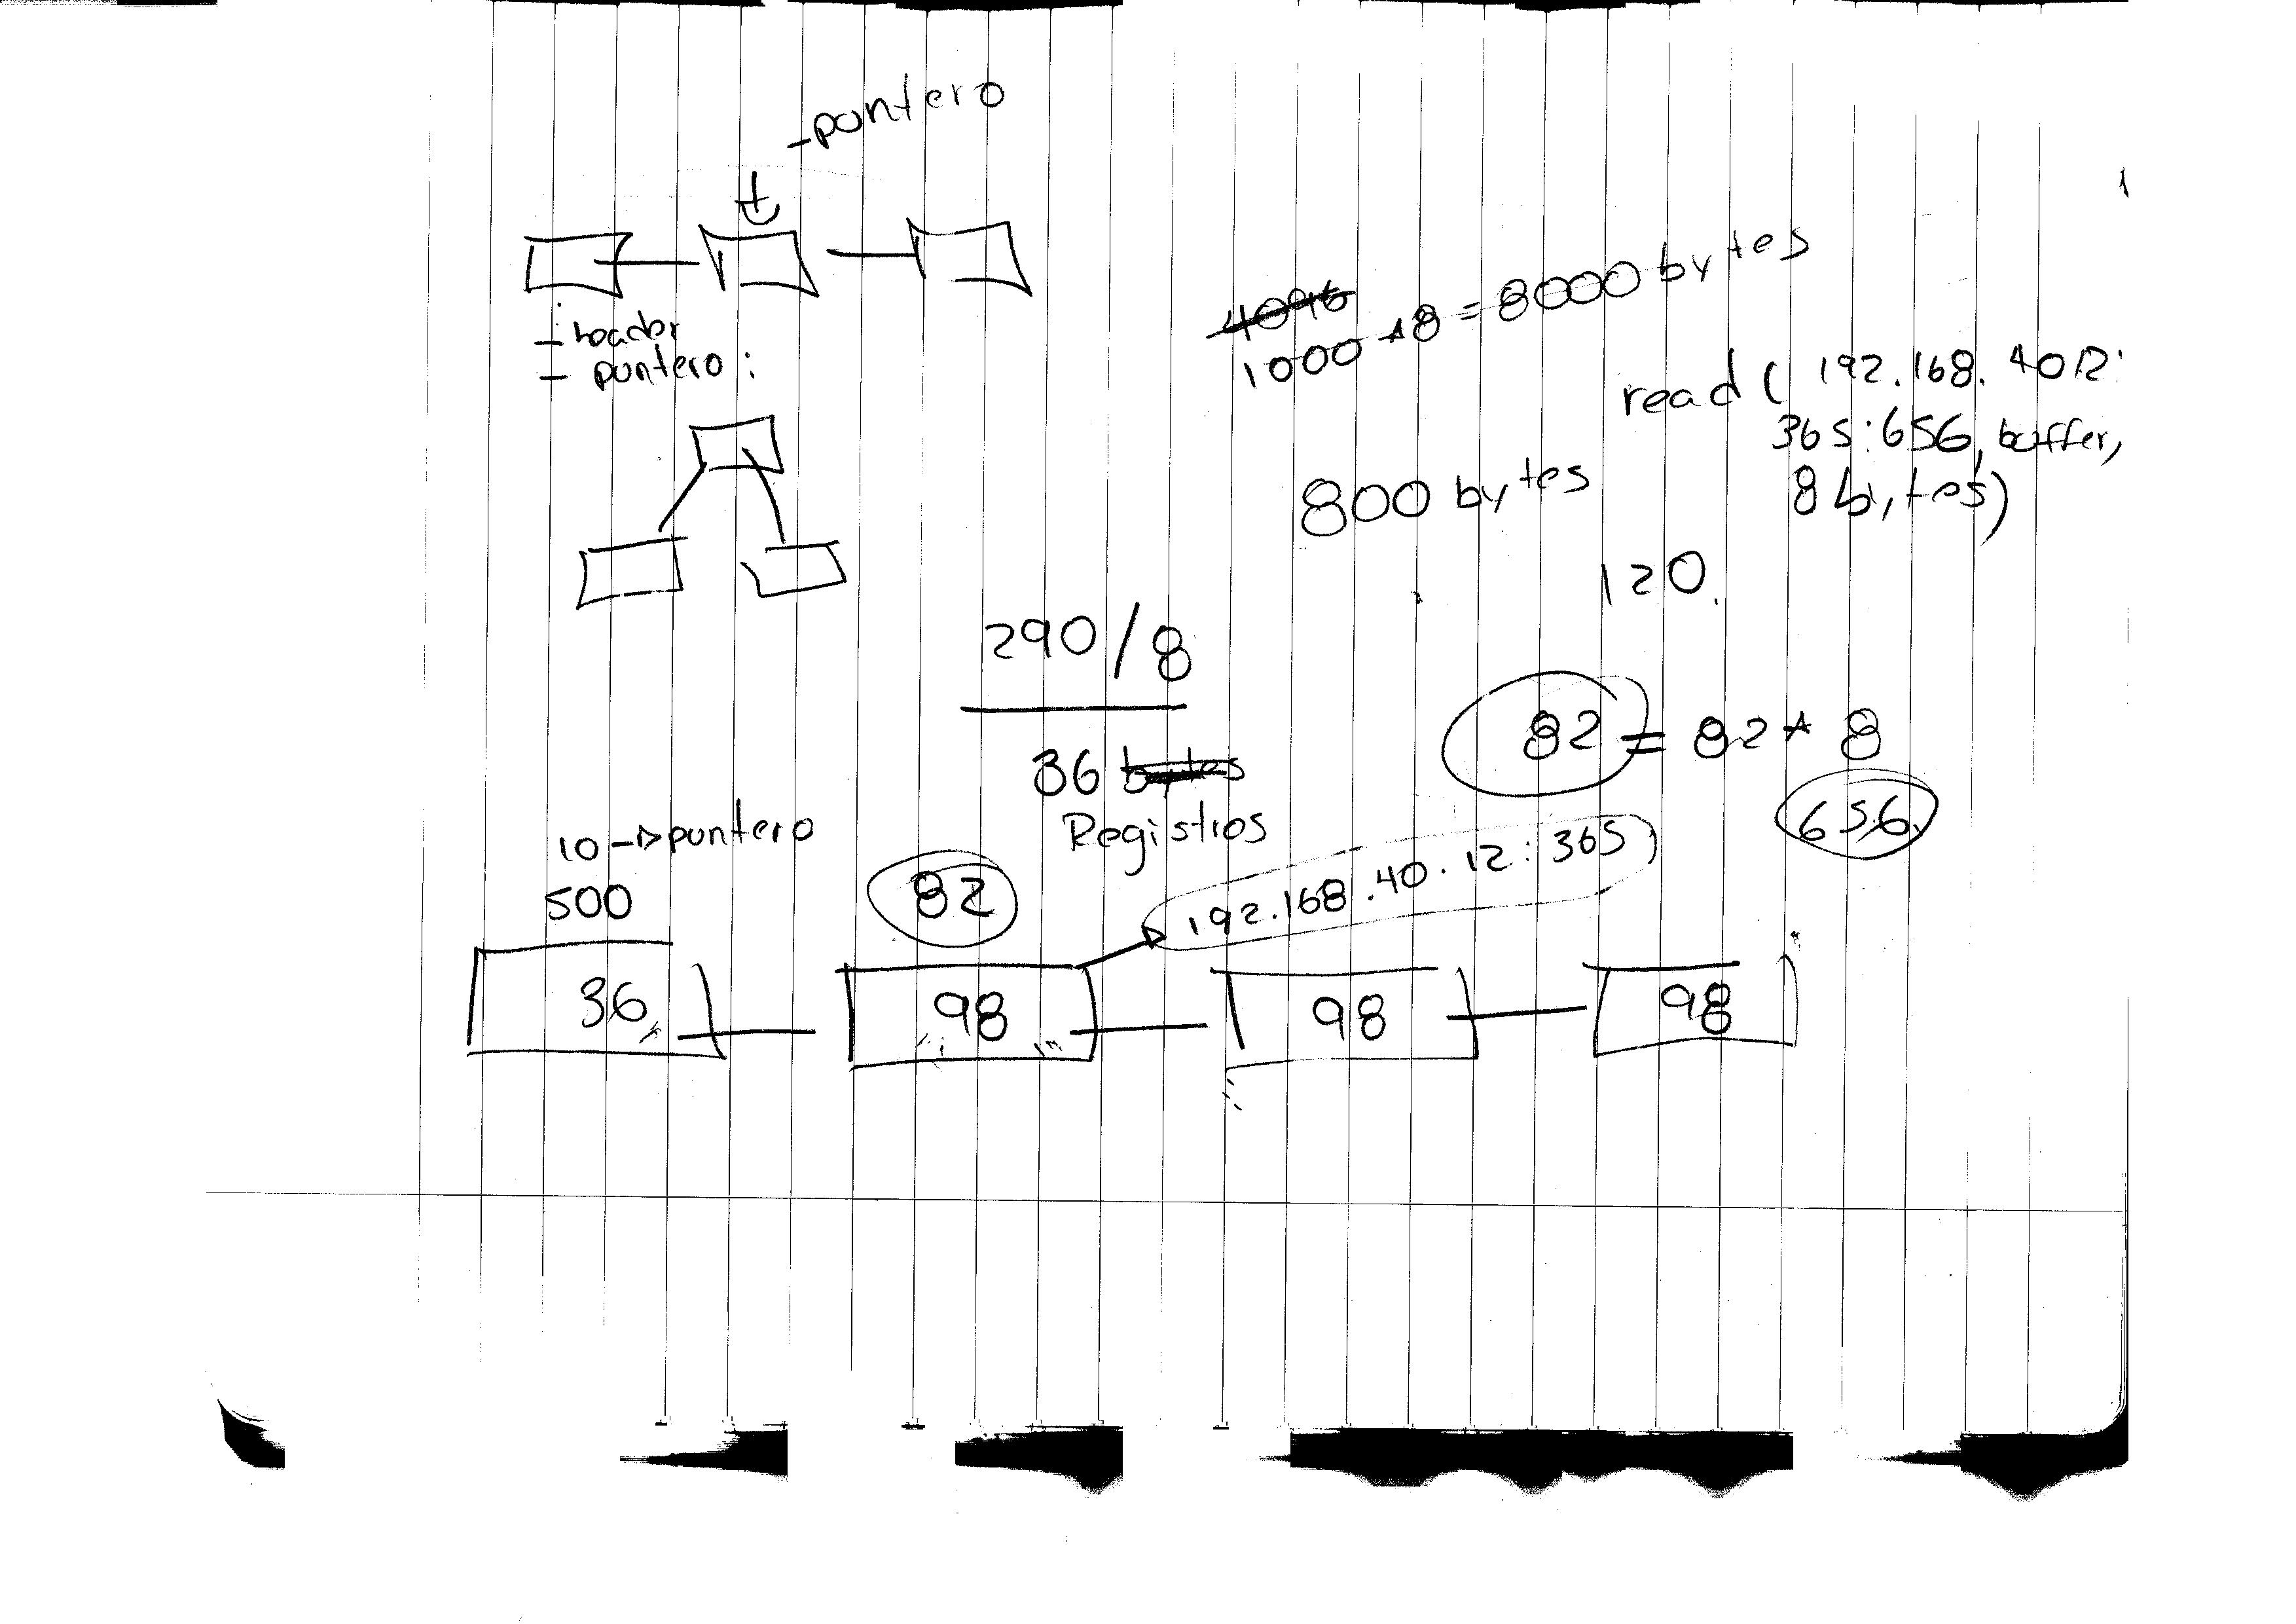 -pontero
- header
- puntero :
4096
1000 * 8 = 8000 bytes
read ( 192.168.4012:
365:656, buffer,
8 bytes)
800 bytes
120.
290/8
36 bytes
Registros
82 = 82 * 8
656.
10 -> puntero
500
82
192.168.40.12:365
36
98
98
98